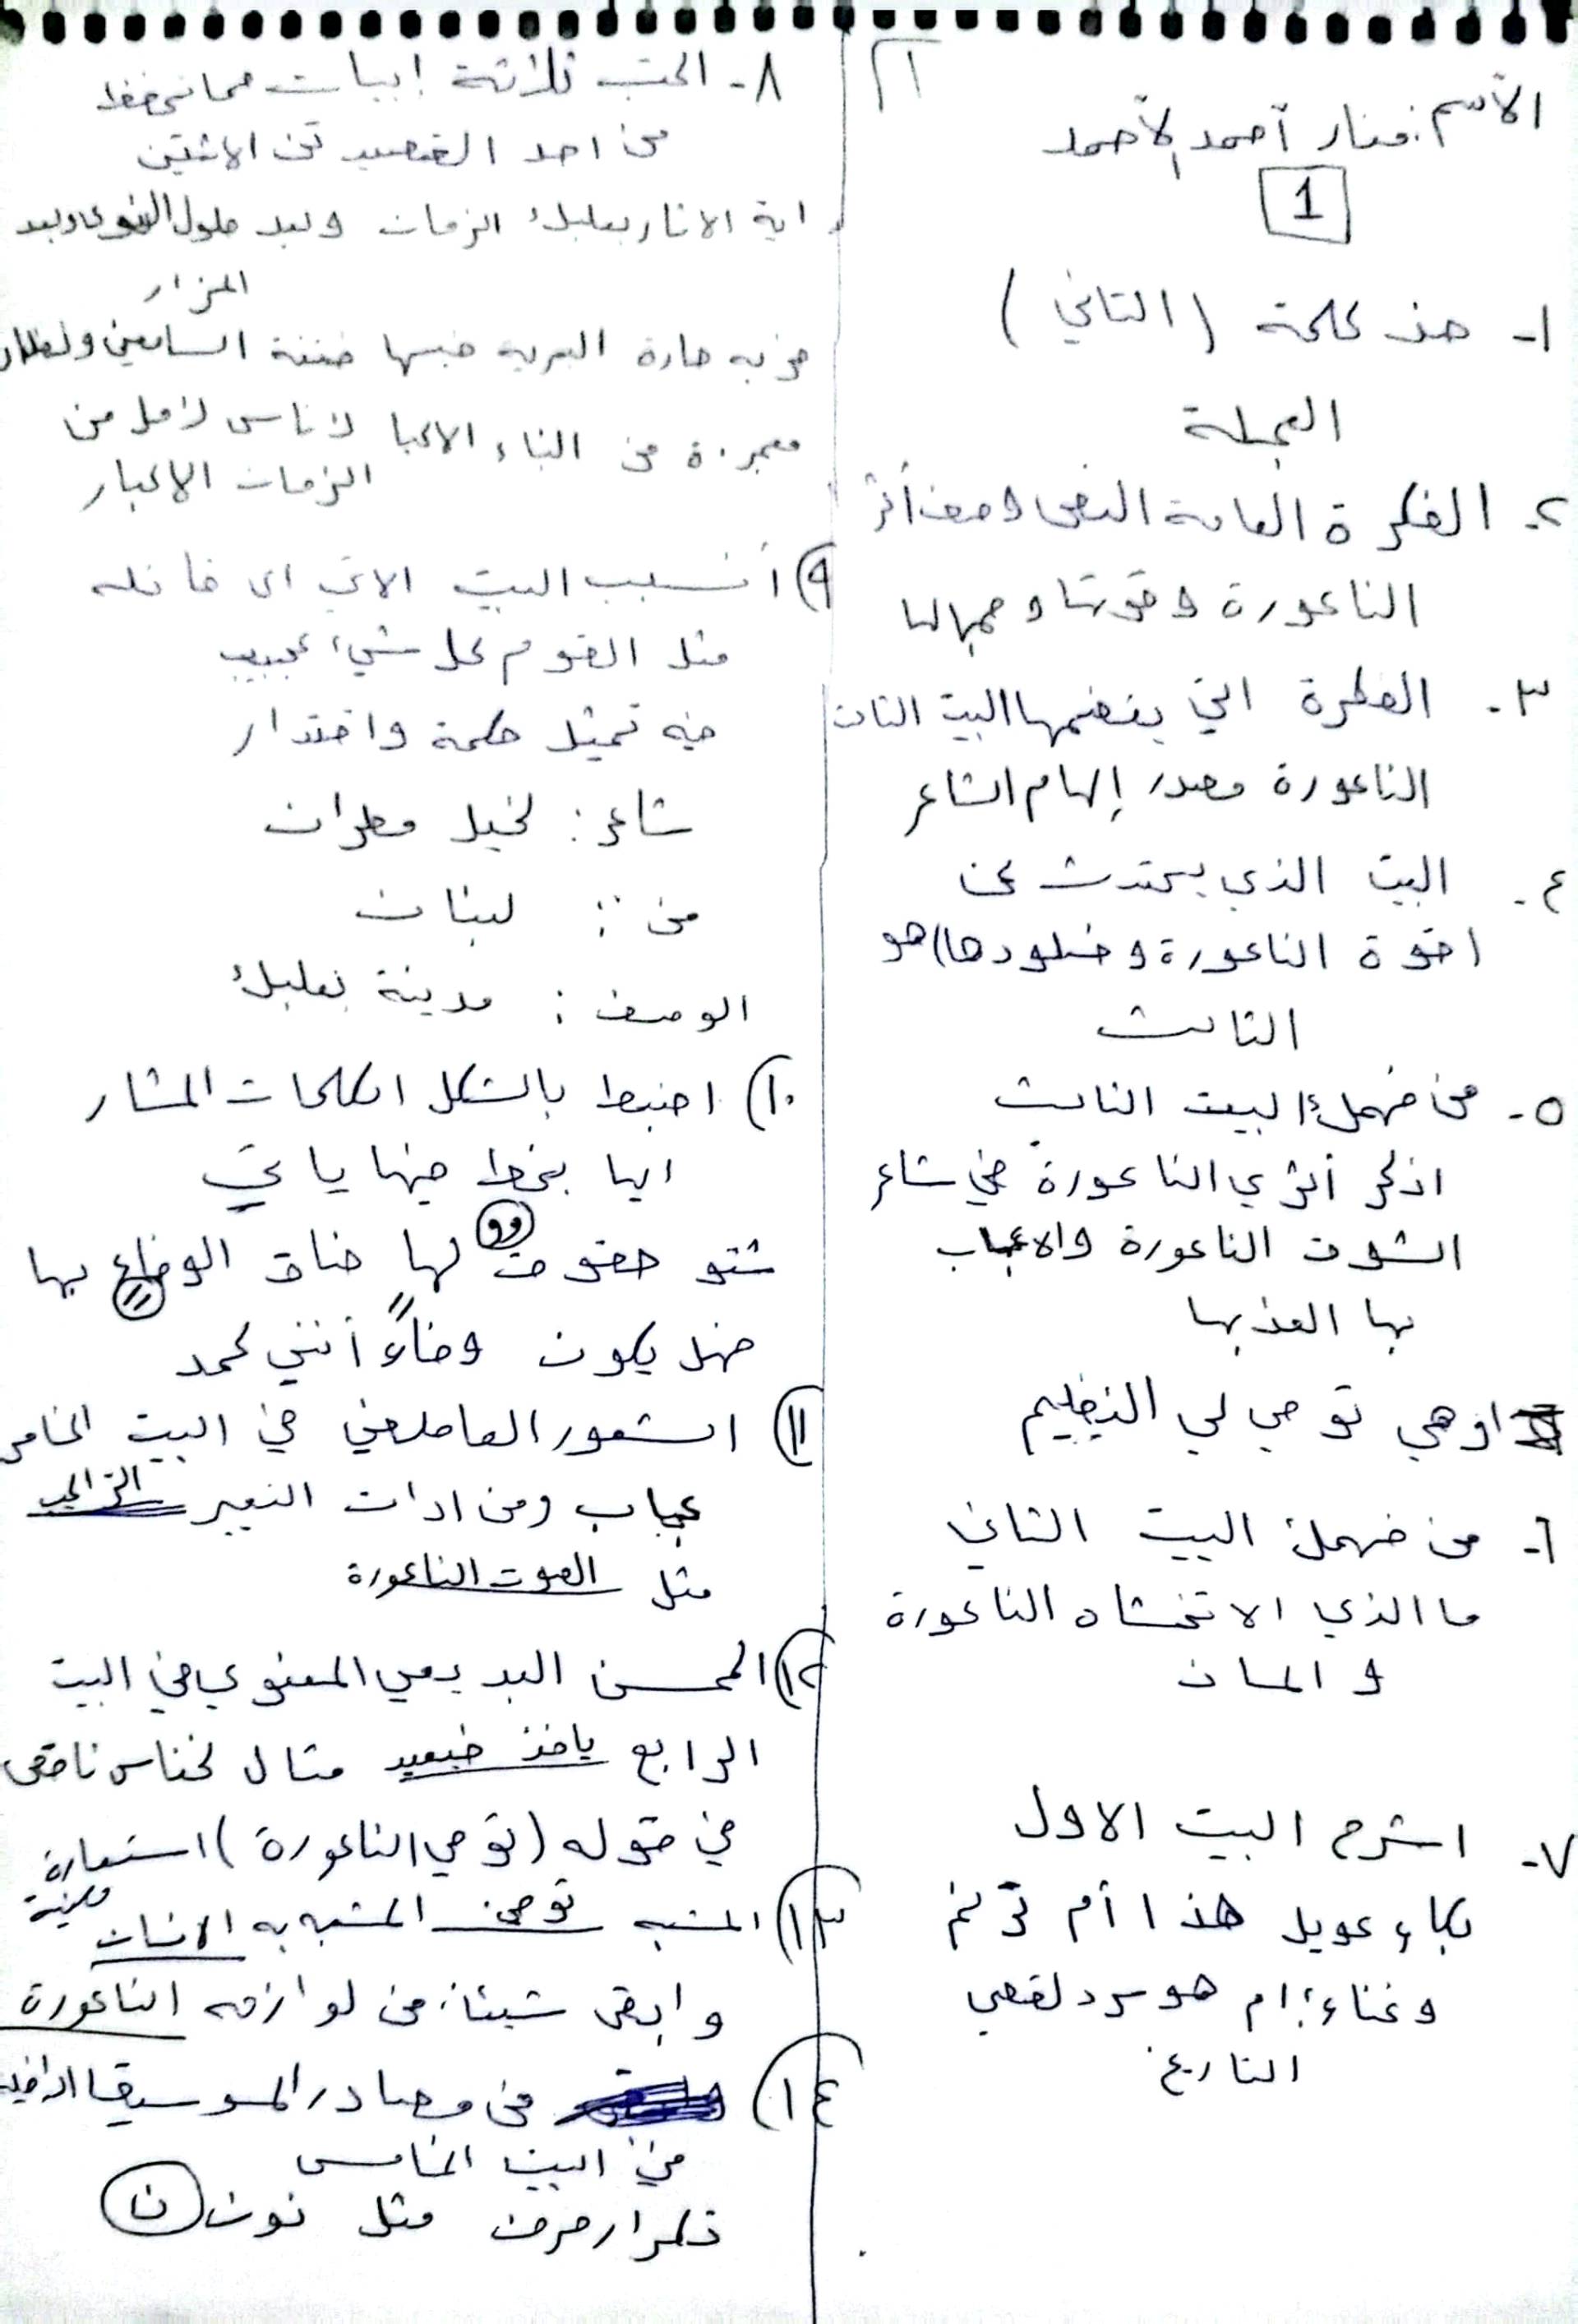 الآسم: منار آحمد الآحمد
1
١- ضد كلمة (التاني)
العجلة
٢- الفكرة العامة النص وصف أثر
الناعورة وقوتها وجمالها
٣- الفكرة التي يتضمها البيت التات
الناعورة مصدر إلهام الشاعر
٤- البيت الذي يتحدث عن
(قوة الناعورة وخلودها) هو
الثالث
٥- من فهمك البيت الثالث
اذكر أثري الناعورة في شاعر
الشوت الناعورة والاعجاب
بها العذبها
او هي توحي لي
٦- من فهمك البيت الثاني
ما الذي لا تخشاه الناعورة
و
٧- اشرح البيت الاول
بكاء عويل هذا أم ترنم
وغناء؛ ام هو سرد لقصص
التاريخ
٨- اكتب ثلاثة ابيات مما تحفظ
من احد القصيد تن الاثنتين
اية الاثار بعلبك الزمان وبعد
المزار
خربه حارة البريه فيها فتنة السامعين ونظار
معجزة من البناء لاناس لامل من
الزمان
٩) أنسب البيت الاتي الى قائله
مثل القوم كل شيء عجيب
فيه تمثيل حكمة واقتدار
شاعر: لخيل مطران
من: لبنان
الوصف: مدينة بعلبك
١٠) اضبط بالشكل الكلمات المشار
اليا بخط فيها ياتي
شتو حقوق لها ضاق الوفاء بها
فهل يكون وفاءً أنني محمد
١١) الشعور العاطفي في البيت الخامس
عجاب ومن ادات التعبير التراكيب
مثل الصوت الناعورة
١٢) المحسن البديعي المعنوي في البيت
الرابع مثال لجناس ناقص
في قوله (توحي الناعورة) استعارة
مكنية
١٣) المشبه توحي المشبه به الانسان
وابقى شيئا من لوازمه الناعورة
١٤) من مصادر الموسيقا الداخلية
في البيت الخامس
تكرار حرف مثل نون ن